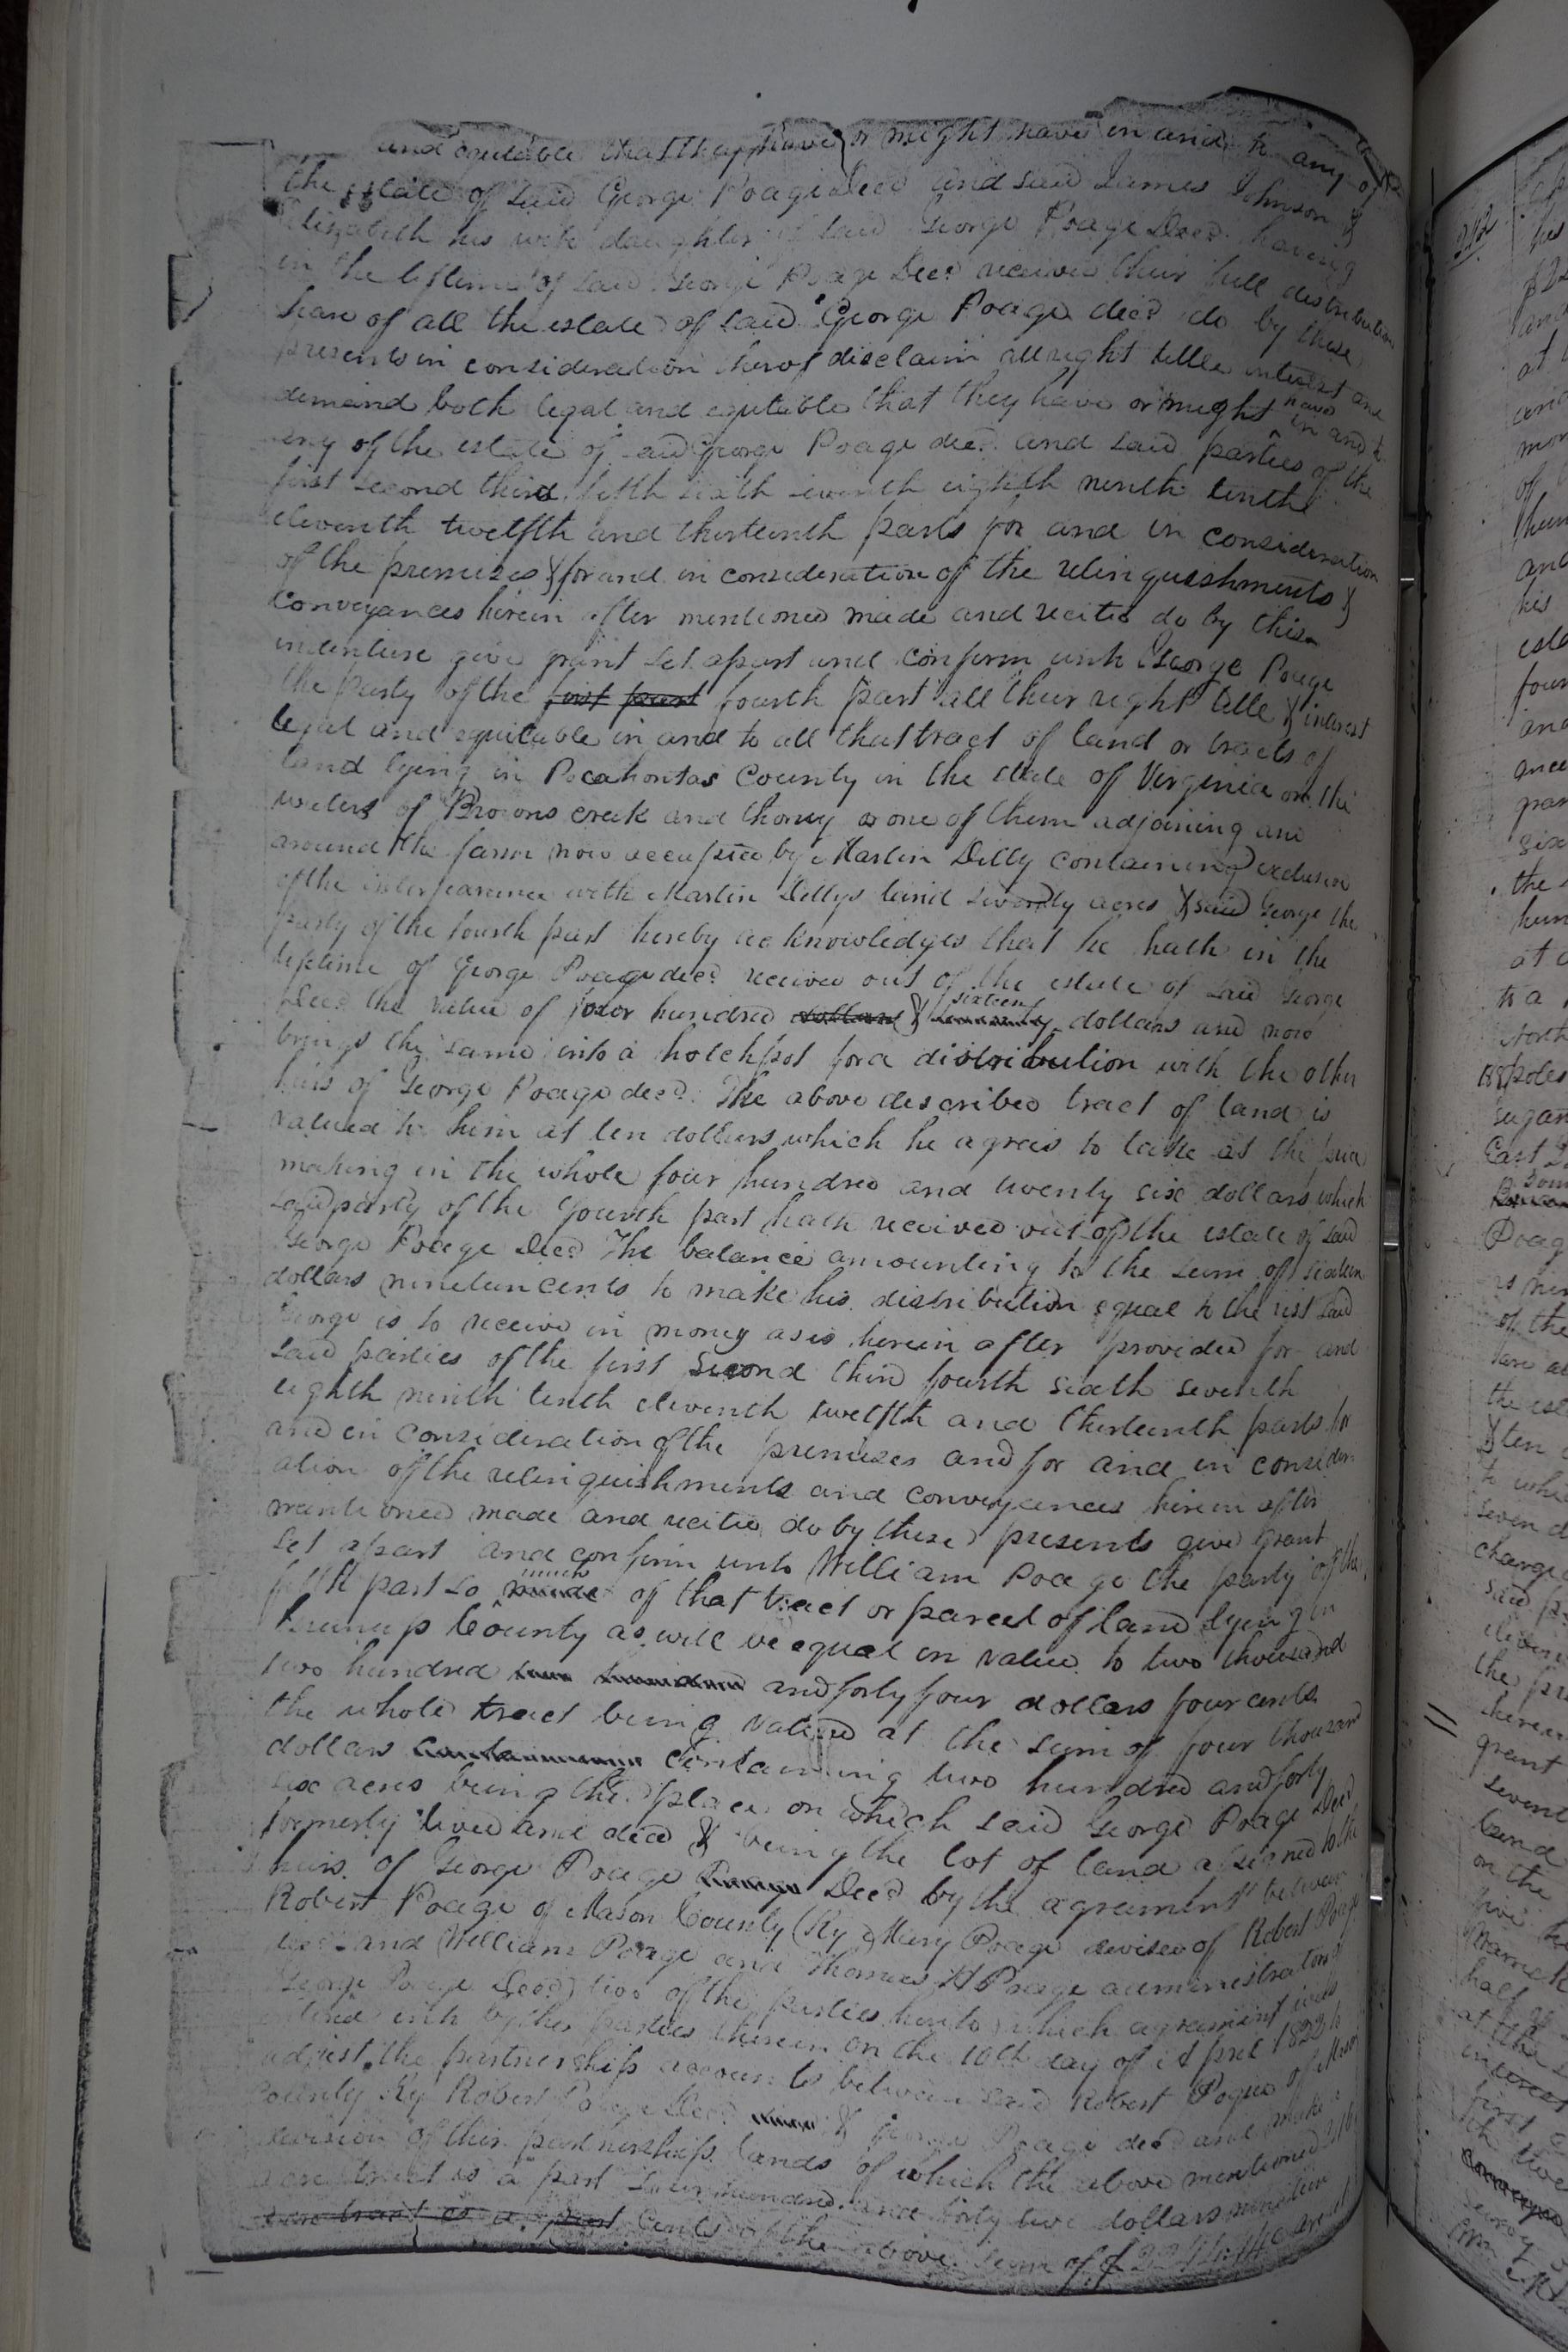 and equitable that they have or might have in and to any of
the estate of said George Poage Decd and said James Johnson &
Elizabeth his wife daughter of said George Poage Decd having
in the lifetime of said George Poage Decd received their full distribution
share of all the estate of said George Poage decd do by these
presents in consideration therof disclaim all right title interest and
demand both legal and equitable that they have or might have in and to
any of the estate of said George Poage decd and said parties of the
first second third fifth sixth seventh eighth ninth tenth
eleventh twelfth and thirteenth parts for and in consideration
of the premises & for and in consideration of the relinquishments &
conveyances herein after mentioned made and recited do by this
indenture give grant set apart and confirm unto George Poage
the party of the first part fourth part all their right title & interest
legal and equitable in and to all that tract of land or tracts of
land lying in Pocahontas County in the state of Virginia on the
waters of Browns creek and thorny or one of them adjoining and
around the farm now occupied by Martin Dilly containing exclusive
of the interfearance with Martin Dillys land seventy acres & said George the
party of the fourth part hereby acknowledges that he hath in the
lifetime of George Poage decd received out of the estate of said George
Decd the value of four hundred dollars & sixteen dollars and now
brings the same into a hotchpot for a distribution with the other
heirs of George Poage decd. The above described tract of land is
valued to him at ten dollars which he agrees to take at the price
making in the whole four hundred and twenty six dollars which
said party of the fourth part hath received out of the estate of said
George Poage Decd The balance amounting to the sum of sixteen
dollars nineteen cents to make his distribution equal to the rest said
George is to receive in money as is herein after provided for and
said parties of the first second third fourth sixth seventh
eighth ninth tenth eleventh twelfth and thirteenth parts for
and in consideration of the premises and for and in consider
ation of the relinquishments and conveyances herein after
mentioned made and recited do by these presents give grant
set apart and confirm unto William Poage the party of the
fifth part so much of that tract or parcel of land lying in
Greenup County as will be equal in value to two thousand
two hundred and forty four dollars four cents
the whole tract being valued at the sum of four thousand
dollars containing two hundred and forty
six acres being the place on which said George Poage Decd
formerly lived and died & being the lot of land assigned to the
heirs of George Poage Decd by the agreement between
Robert Poage of Mason County (Ky) Mary Poage devisee of Robert Poage
decd and William Poage and Thomas H Poage administrators
George Poage Decd) two of the parties hereto which agreement was
entered into by the parties therein on the 10th day of April 1823 to
adjust the partnership accounts between said Robert Pogue of Mason
County Ky Robert Poage Decd & George Poage decd and make a
division of their partnership lands of which the above mentioned 246
acre tract is a part Seven hundred and forty two dollars nineteen
acre tract is a part Cents of the above sum of $2244.4 are